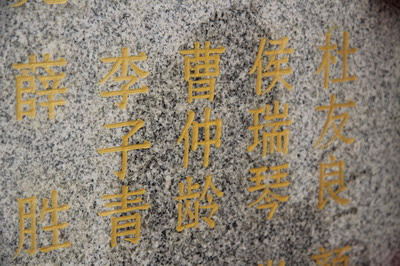 杜友良
侯瑞琴
曹仲龄
李子青
薛胜